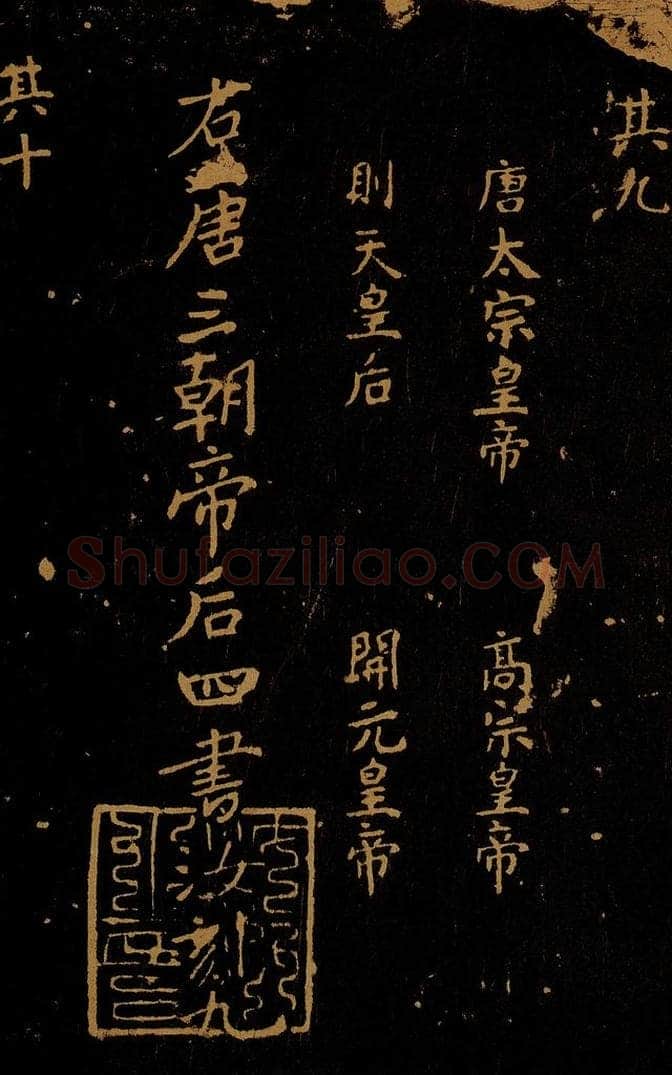 其九
唐太宗皇帝 高宗皇帝
則天皇后 開元皇帝
右唐三朝帝后四書汝刻九
其十
Shufaziliao.COM